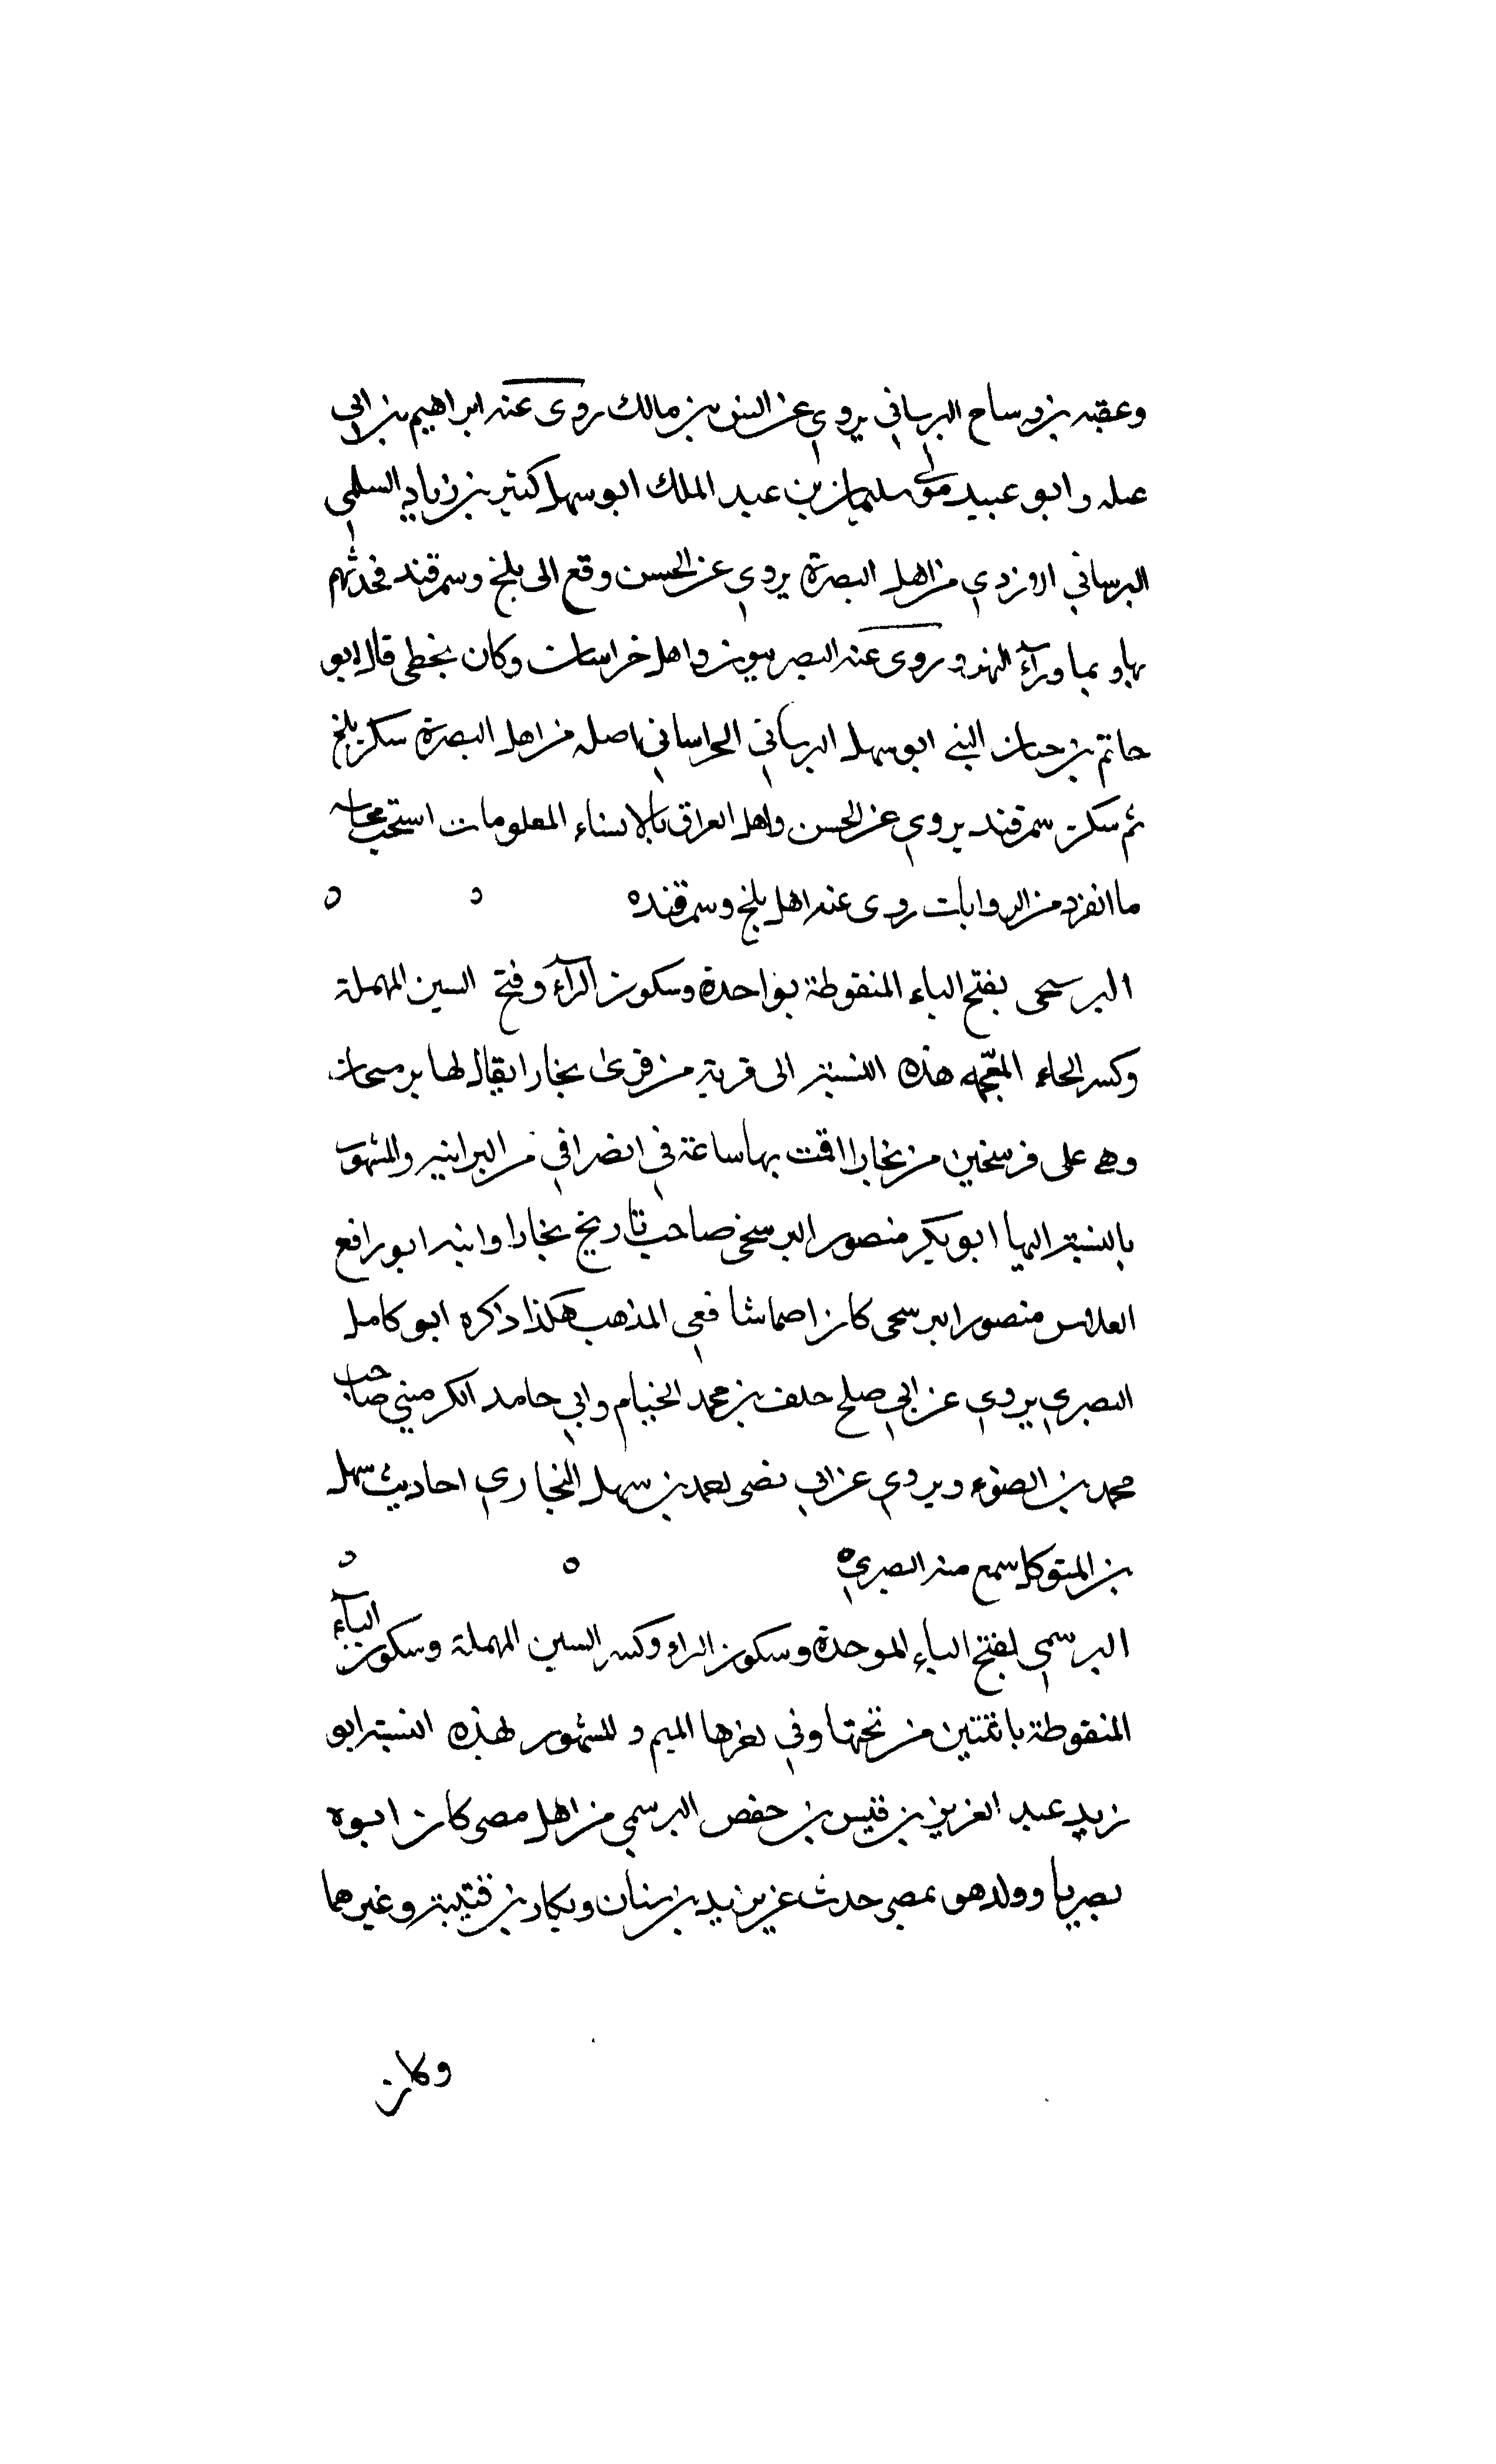 وعقبه بن وساح البرساني يروي عن انس بن مالك روى عنه ابراهيم بن ابي
عبله وابو عبيد مولى سليمان بن عبد الملك ابو سهل كثير بن زياد السلمي
البرساني الازدي من اهل البصرة يروي عن الحسن وقع الى بلخ وسمرقند فحدثهم
بها وبما ورآء النهر وروى عنه البصريون واهل خراسان وكان يخطى قال ابو
حاتم بن حبان البتي ابو سهل البرساني الخراساني اصله من اهل البصرة سكن بلخ
ثم سكن سمرقند يروي عن الحسن واهل العراق بالاشياء المعلومات استحب مجانبه
ما انفرد من الروايات روى عنه اهل بلخ وسمرقنده
البرسحى بفتح الباء المنقوطة بواحدة وسكون الرآء وفتح السين المهملة
وكسر الخاء المعجمه هذه النسبة الى قرية من قرى بخارا يقال لها برسخان
وهي على فرسخين من بخارا اقمت بها ساعة في انصرافي من البرانيه والمشهور
بالنسبة اليها ابو بكر منصور البرسخى صاحب تاريخ بخارا وابنه ابو رافع
العلاس منصور البرسحى كان اصما شافعي المذهب هكذا ذكره ابو كامل
البصري يروي عن ابي صلح خلف بن محمد الخيام وابي حامد الكرميني صاحب
محمد بن الضوء ويروي عن ابي نصر احمد بن سهل البخاري احاديث سهل
بن المتوكل سمع منه البصري ه
البرسمى بفتح الباء الموحدة وسكون الراء وكسر السين المهملة وسكون اليآء
المنقوطة باثنتين من تحتها وفي اخرها الميم والمشهور بهذه النسبة ابو
زيد عبد العزيز بن قيس بن حفص البرسمي من اهل مصر كان ابوه
بصريا وولد هو بمصر حدث عن يزيد بن سنان وبكار بن قتيبة وغيرهما
وكان